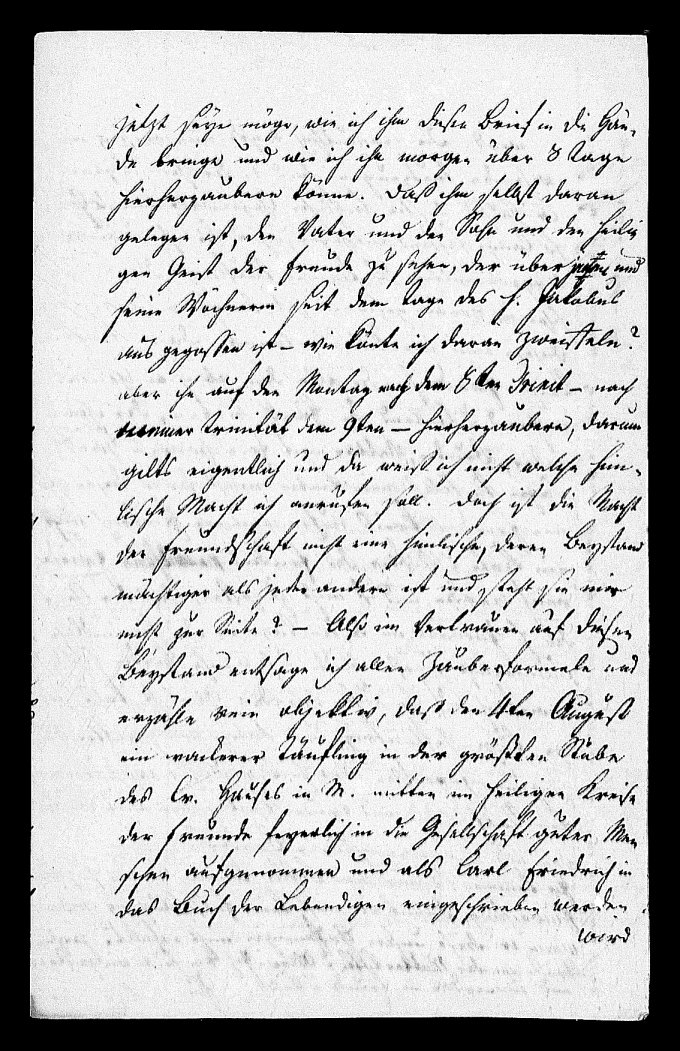 jetzt seye möge, wie ich ihm diesen Brief in die Hän-
de bringe und wie ich ihn morgen über 8 Tage
hierherzaubern könne. Daß ihm selbst daran
gelegen ist, den Vater und den Sohn und den heili
gen Geist der Freude zu sehen, der über und
seine Wöchnerin seit dem Tage des h. Jakobus
ausgegossen ist – wie könte ich daran zweifeln?
aber ihn auf den Montag nach dem 8ten Trinit – nach
Trinität dem 9ten – hierherzaubern, darum
gilts eigentlich und da weiß ich nicht welche him-
lische Macht ich anrufen soll. Doch ist die Macht
der Freundschaft nicht eine himlische, deren Beystand
mächtiger als jeder andere ist und steht sie mir
nicht zur Seite? – Also im Vertrauen auf diesen
Beystand entsage ich allen Zauberformeln und
erzähle rein objektiv, daß den 4ten August
ein wackerer Täufling in der grösten Stube
des Hauses in M. mitten im heiligen Kreise
der Freunde feyerlich in die Gesellschaft guter Men
schen aufgenommen und als Carl Friedrich in
das Buch der Lebendigen eingeschrieben werden
wird